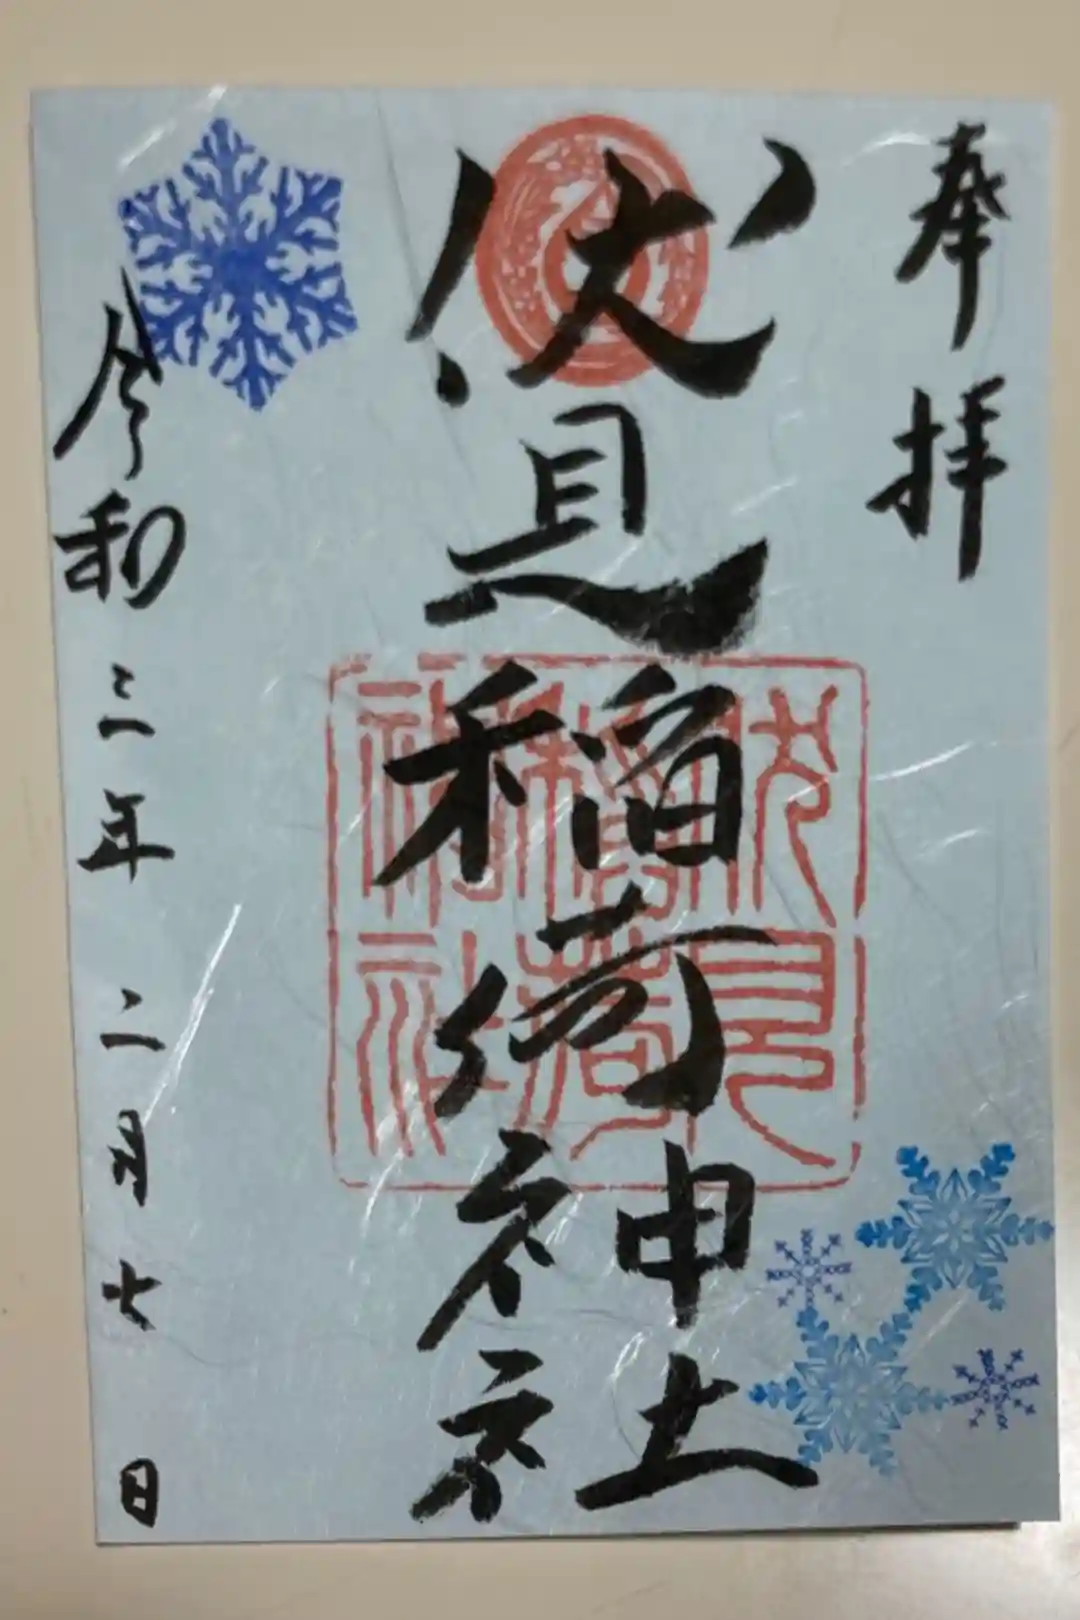 奉拝
伏見稲荷神社
伏見
稲荷
神社
令和三年二月七日